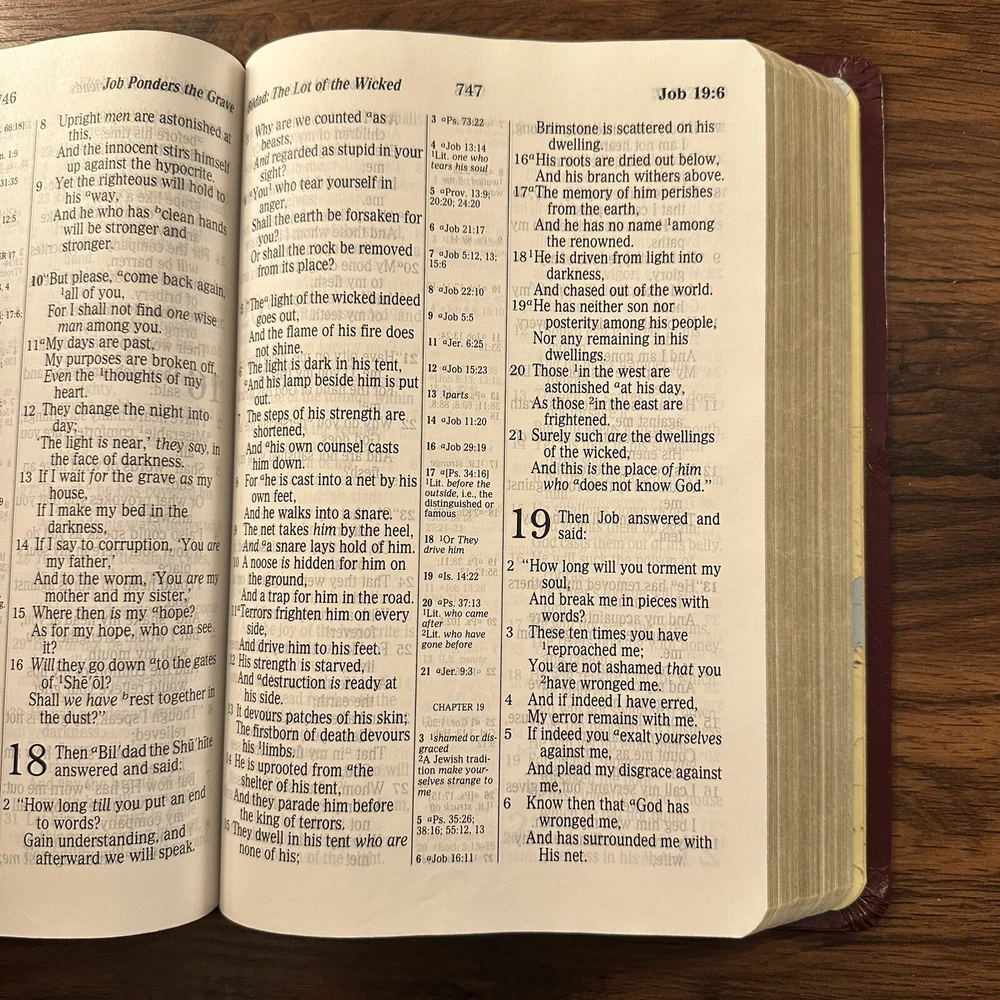 746
Job Ponders the Grave
66:18]
n. 1:9
31:35
12:5
17:6;
8 Upright men are astonished at
this,
And the innocent stirs himself
up against the hypocrite.
9 Yet the righteous will hold to
his ᵃway,
And he who has ᵇclean hands
will be stronger and
stronger.
10 “But please, ᵃcome back again,
¹all of you,
For I shall not find one wise
man among you.
11 ᵃMy days are past,
My purposes are broken off,
Even the ¹thoughts of my
heart.
12 They change the night into
day;
‘The light is near,’ they say, in
the face of darkness.
13 If I wait for the grave as my
house,
If I make my bed in the
darkness,
14 If I say to corruption, ‘You are
my father,’
And to the worm, ‘You are my
mother and my sister,’
15 Where then is my ᵃhope?
As for my hope, who can see
it?
16 Will they go down ᵃto the gates
of ¹Shē′ōl?
Shall we have ᵇrest together in
the dust?”
18 Then ᵃBil′dad the Shū′hīte
answered and said:
2 “How long till you put an end
to words?
Gain understanding, and
afterward we will speak.
Bildad: The Lot of the Wicked
747
Job 19:6
Why are we counted ᵃas
beasts,
And regarded as stupid in your
sight?
ᵃYou¹ who tear yourself in
anger,
Shall the earth be forsaken for
you?
Or shall the rock be removed
from its place?
5 “The ᵃ light of the wicked indeed
goes out,
And the flame of his fire does
not shine.
6 The light is dark in his tent,
ᵃAnd his lamp beside him is put
out.
7 The steps of his strength are
shortened,
And ᵃhis own counsel casts
him down.
8 For ᵃhe is cast into a net by his
own feet,
And he walks into a snare.
9 The net takes him by the heel,
And ᵃa snare lays hold of him.
10 A noose is hidden for him on
the ground,
And a trap for him in the road.
11 ᵃTerrors frighten him on every
side,
And drive him to his feet.
12 His strength is starved,
And ᵃdestruction is ready at
his side.
13 It devours patches of his skin;
The firstborn of death devours
his ¹limbs.
14 He is uprooted from ᵃthe
shelter of his tent,
And they parade him before
the king of terrors.
15 They dwell in his tent who are
none of his;
3 ᵃPs. 73:22
4 ᵃJob 13:14
¹Lit. one who
tears his soul
5 ᵃProv. 13:9;
20:20; 24:20
6 ᵃJob 21:17
7 ᵃJob 5:12, 13;
15:6
8 ᵃJob 22:10
9 ᵃJob 5:5
11 ᵃJer. 6:25
12 ᵃJob 15:23
13 ¹parts
14 ᵃJob 11:20
16 ᵃJob 29:19
17 ᵃ[Ps. 34:16]
¹Lit. before the
outside, i.e., the
distinguished or
famous
18 ¹Or They
drive him
19 ᵃIs. 14:22
20 ᵃPs. 37:13
¹Lit. who came
after
²Lit. who have
gone before
21 ᵃJer. 9:3
CHAPTER 19
3 ¹shamed or dis-
graced
²A Jewish tradi-
tion make your-
selves strange to
me
5 ᵃPs. 35:26;
38:16; 55:12, 13
6 ᵃJob 16:11
Brimstone is scattered on his
dwelling.
16 ᵃHis roots are dried out below,
And his branch withers above.
17 ᵃThe memory of him perishes
from the earth,
And he has no name ¹among
the renowned.
18 ¹He is driven from light into
darkness,
And chased out of the world.
19 ᵃHe has neither son nor
posterity among his people,
Nor any remaining in his
dwellings.
20 Those ¹in the west are
astonished ᵃat his day,
As those ²in the east are
frightened.
21 Surely such are the dwellings
of the wicked,
And this is the place of him
who ᵃdoes not know God.”
19 Then Job answered and
said:
2 “How long will you torment my
soul,
And break me in pieces with
words?
3 These ten times you have
¹reproached me;
You are not ashamed that you
²have wronged me.
4 And if indeed I have erred,
My error remains with me.
5 If indeed you ᵃexalt yourselves
against me,
And plead my disgrace against
me,
6 Know then that ᵃGod has
wronged me,
And has surrounded me with
His net.